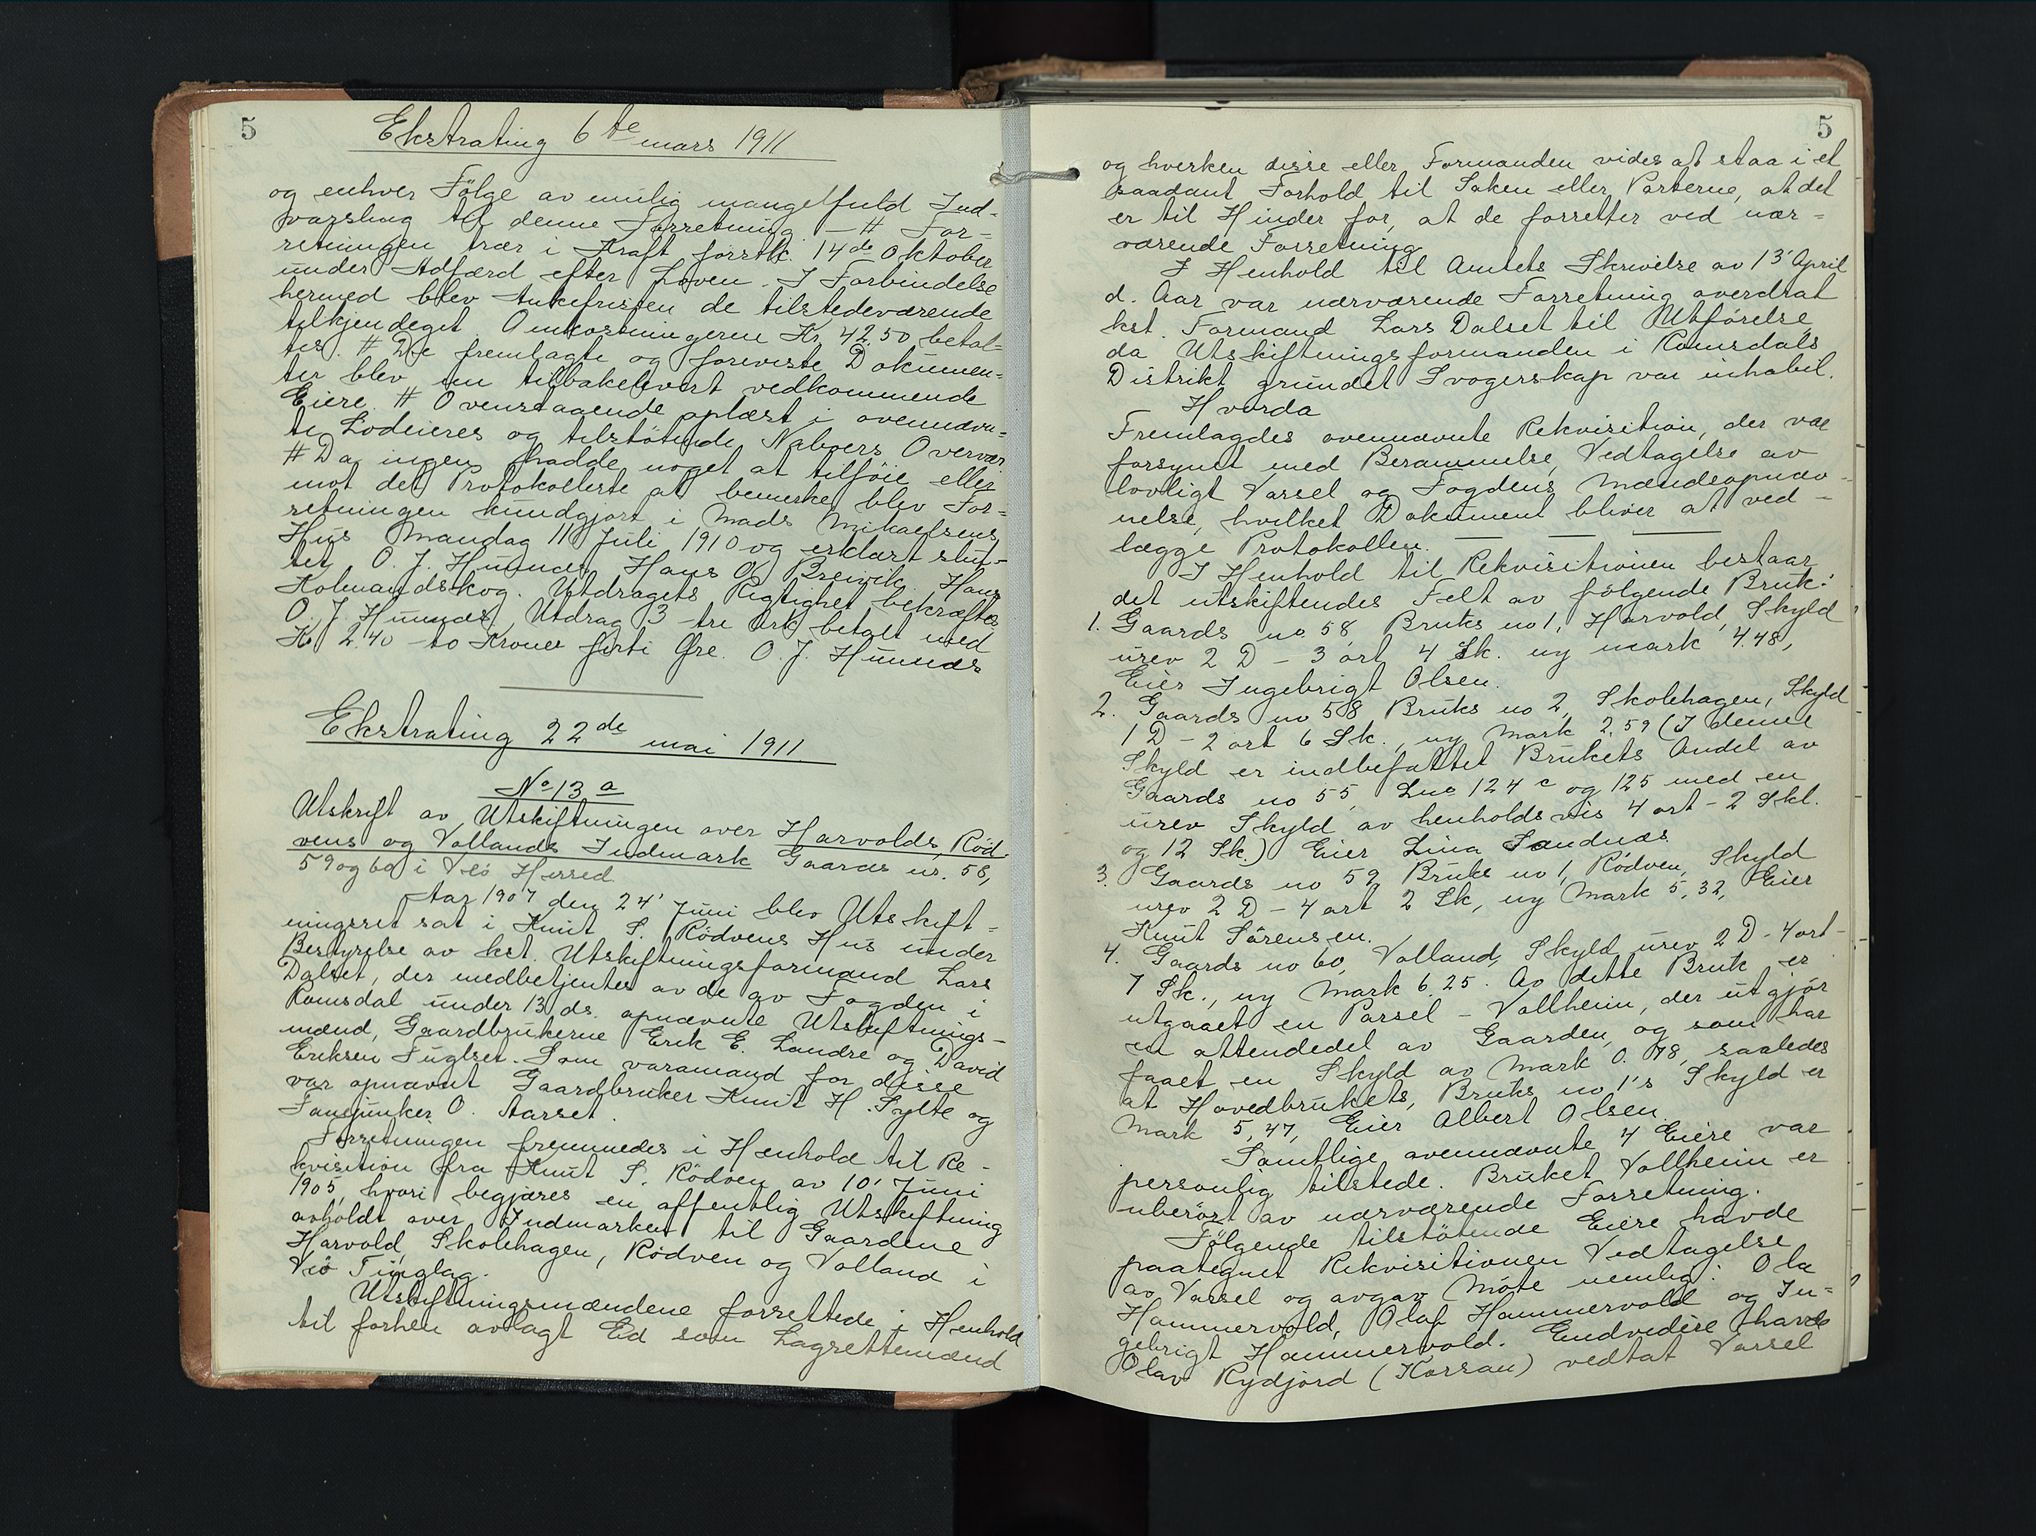 5
Ekstrating 6te mars 1911
og enhver Følge av mulig mangelfuld Ind-
varsling til denne Forretning. — # For=
retningen trær i Kraft førstk. 14de Oktober
under Adfærd efter Loven. I Forbindelse
hermed blev Ankefristen de tilstedeværende
tilkjendeget. Omkostningerne Kr. 42.50 betal=
tes. # De fremlagte og foreviste Dokumen-
ter blev nu tilbakelevert vedkommende
Eiere. # Ovenstaaende oplæst i ovennævn=
te Lodeieres og tilstøtende Naboers Overvær
# Da ingen hadde noget at tilføie eller
mot det Protokollerte at bemerke blev For=
retningen kundgjort i Mads Mikaelsens
Hus Mandag 11 Juli 1910 og erklært slut-
tet. O. J. Hunnes, Hans O. Breivik, Hans
Kolmandskog. Utdragets Rigtighet bekræftes
O. J. Hunnes, Utdrag 3 tre Ark betalt med
Kr 2.40 to Kroner førti Øre. O. J. Hunnes
Ekstrating 22de mai 1911.
No 13 a
Utskrift av Utskiftningen over Harvolds, Rød-
vens og Vollands Indmark Gaards nr. 58,
59 og 60 i Veø Herred.
Aar 1907 den 24' Juni blev Utskift-
ningsret sat i Knut S. Rødvens Hus under
Bestyrelse av kst. Utskiftningsformand Lars
Dalset, der medbetjentes av de av Fogden i
Romsdal under 13 ds. opnævnte Utskiftnings-
mænd, Gaardbrukerne Erik E. Landre og David
Eriksen Fuglset. Som varamand for disse
var opnævnt Gaardbruker Knut H. Sylte og
Fanejunker O. Aarset.
Forretningen fremmedes i Henhold til Re-
kvisition fra Knut S. Rødven av 10' Juni
1905, hvori begjæres en offentlig Utskiftning
avholdt over Indmarken til Gaardene
Harvold, Skolehagen, Rødven og Volland i
Veø Tinglag.
Utskiftningsmændene forrettede i Henhold
til forhen avlagt Ed som Lagrettemænd
5
og hverken disse eller Formanden vides at staa i et
saadant Forhold til Saken eller Parterne, at det
er til Hinder for, at de forretter ved nær=
værende Forretning.
I Henhold til Amtets Skrivelse av 13' April
d. Aar var nærværende Forretning overdrat
kst. Formand Lars Dalset til Utførelse,
da Utskiftningsformanden i Romsdals
Distrikt grundet Svogerskap var inhabil.
Hvorda
Fremlagdes ovennævnte Rekvisition, der var
forsynet med Berammelse, Vedtagelse av
lovligt Varsel og Fogdens Mændsopnæv-
nelse, hvilket Dokument bliver at ved-
lægge Protokollen.
I Henhold til Rekvisitionen bestaar
det utskiftendes Felt av følgende Bruk:
1. Gaards no 58, Bruks no 1, Harvold, Skyld
urev 2 D - 3 ort 4 Sk. ny mark 4.48,
Eier Ingebrigt Olsen.
2. Gaards no 58 Bruks no 2, Skolehagen, Skyld
1 D - 2 ort 6 Sk., ny Mark 2.59 (I denne
Skyld er indbefattet Brukets Andel av
Gaards no 55, Lno 124 c og 125 med en
urev Skyld av henholdsvis 4 ort - 2 Skl.
og 12 Sk.) Eier Lina Sandnæs.
3. Gaards no 59, Bruks no 1, Rødven, Skyld
urev 2 D - 4 ort 2 Sk, ny Mark 5,32, Eier
Knut Sørensen.
4. Gaards no 60, Volland, Skyld urev 2 D - 4 ort -
7 Sk., ny Mark 6.25. Av dette Bruk er
utgaaet en Parsel - Vollheim, der utgjør
en attendedel av Gaarden, og som har
faaet en Skyld av Mark 0.78, saaledes
at Hovedbrukets, Bruks no 1's Skyld er
Mark 5,47, Eier Albert Olsen.
Samtlige ovennævnte 4 Eiere var
personlig tilstede. Bruket Vollheim er
uberørt av nærværende Forretning.
Følgende tilstøtende Eiere havde
paategnet Rekvisitionen Vedtagelse
av Varsel og avgav Møte nemlig: Ola
Hammervold, Olaf Hammervold og In-
gebrigt Hammervold. Endvidere havde
Olav Rydjord (Korsan) vedtat Varsel